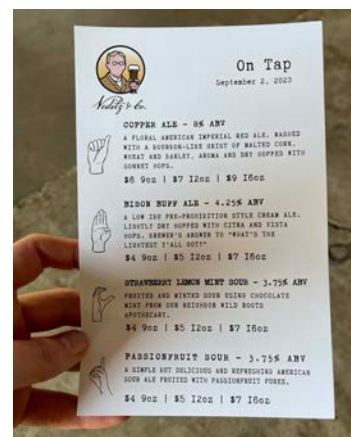 On Tap
September 2, 2023
& Co.
COPPER ALE - 8% ABV
A FLORAL AMERICAN IMPERIAL RED ALE. MASHED
WITH A BOURBON-LIKE GRIST OF MALTED CORN,
WHEAT AND BARLEY. AROMA AND DRY HOPPED WITH
HOPS.
$6 9oz | $7 12oz | $9 16oz
BISON BUFF ALE - 4.25% ABV
A LOW IBU PRE-PROHIBITION STYLE CREAM ALE.
LIGHTLY DRY HOPPED WITH CITRA AND VISTA
HOPS. BREWER'S ANSWER TO "WHAT'S THE
LIGHTEST Y'ALL GOT?"
$4 9oz | $5 12oz | $7 16oz
STRAWBERRY LEMON MINT SOUR - 3.75% ABV
FRUITED AND MINTED SOUR USING CHOCOLATE
MINT FROM OUR NEIGHBOR WILD ROOTS
APOTHECARY.
$4 9oz | $5 12oz | $7 16oz
PASSIONFRUIT SOUR - 3.75% ABV
A SIMPLE BUT DELICIOUS AND REFRESHING AMERICAN
SOUR ALE FRUITED WITH PASSIONFRUIT PUREE.
$4 9oz | $5 12oz | $7 16oz